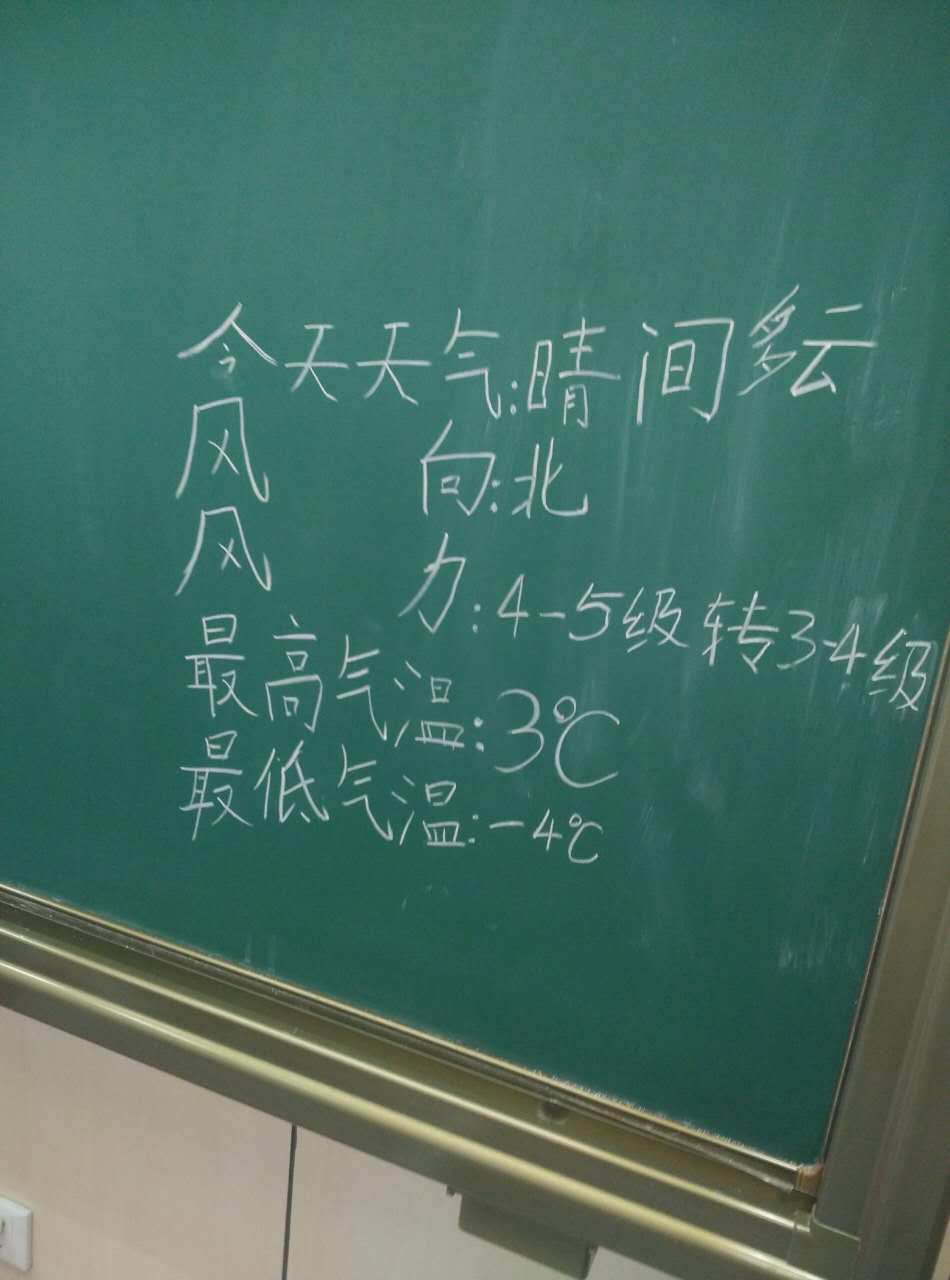 今天天气:晴间多云
风 向:北
风 力:4-5级转3-4级
最高气温:3℃
最低气温:-4℃